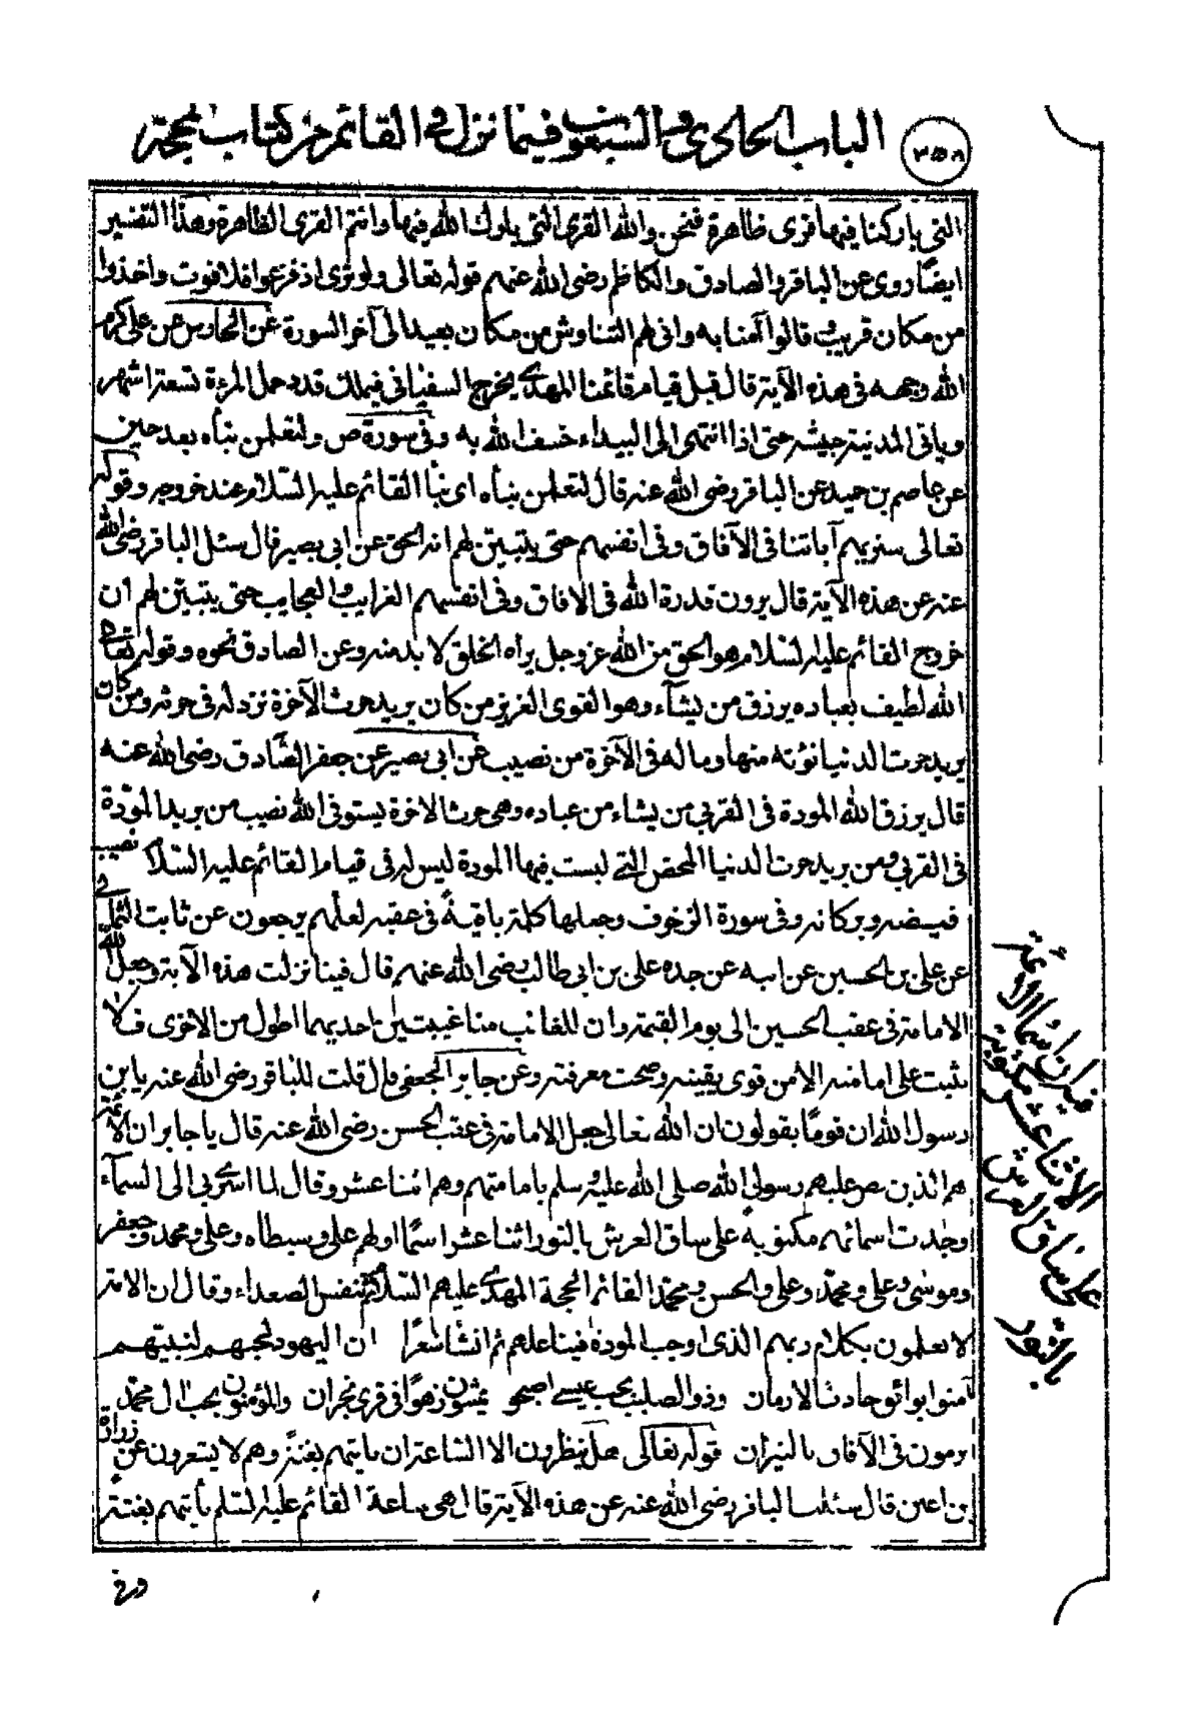 ٣٥٨
الباب الحادي والسبعون فيما نزل في القائم من كتاب المحجة
التي باركنا فيها قرى ظاهرة فنحن والله القرى التي بارك الله فيها وانتم القرى الظاهرة وهذا التفسير
ايضا روى عن الباقر والصادق والكاظم رضى الله عنهم قوله تعالى ولو ترى اذ فزعوا فلا فوت واخذوا
من مكان قريب قالوا آمنا به وانى لهم التناوش من مكان بعيد الى آخر السورة عن الحارس عن على كرم
الله وجهه فى هذه الآية قال قبل قيام قائمنا المهدي يخرج السفياني فيملك قدر حمل المرءة تسعة اشهر
وياتى المدينة جيشه حتى اذا انتهى الى البيداء خسف الله به وفى سورة ص ولتعلمن نبأه بعد حين
عن عاصم بن حميد عن الباقر رضى الله عنه قال لتعلمن نبأه اى نبأ القائم عليه السلام عند خروجه وقوله
تعالى سنريهم آياتنا فى الآفاق وفى انفسهم حتى يتبين لهم انه الحق عن ابى بصير قال سئل الباقر رضى الله
عنه عن هذه الآية قال يرون قدرة الله فى الافاق وفى انفسهم الغرايب والعجايب حتى يتبين لهم ان
خروج القائم عليه السلام هو الحق من الله عز وجل يراه الخلق لا بد منه وعن الصادق نحوه وقوله تعالى
الله لطيف بعباده يرزق من يشآء وهو القوى العزيز من كان يريد حرث الآخرة نزد له فى حرثه ومن كان
يريد حرث الدنيا نؤته منها وما له فى الآخرة من نصيب عن ابى بصير عن جعفر الصادق رضى الله عنه
قال يرزق الله المودة فى القربى من يشاء من عباده وهى حرث الاخرة يستوفى الله نصيب من يريد المودة
فى القربى ومن يريد حرث الدنيا المحض التى ليست فيها المودة ليس له فى قيام القائم عليه السلام نصيب
فيضه وبركاته وفى سورة الزخرف وجعلها كلمة باقية فى عقبه لعلهم يرجعون عن ثابت الثمالى
عن على بن الحسين عن ابيه عن جده على بن ابى طالب رضى الله عنهم قال فينا نزلت هذه الآية وجعل الله
الامامة فى عقب الحسين الى يوم القيمة وان للغائب منا غيبتين احديهما اطول من الاخرى فلا
يثبت على امامته الا من قوى يقينه وصحت معرفته وعن جابر الجعفى قال قلت للباقر رضى الله عنه يابن
رسول الله ان قوما يقولون ان الله تعالى جعل الامامة فى عقب الحسن رضى الله عنه قال يا جابر ان الائمة
هم الذين نص عليهم رسول الله صلى الله عليه وسلم بامامتهم وهم اثنا عشر وقال لما اسرى بى الى السمآء
وجدت اسمائهم مكتوبة على ساق العرش بالنور اثنا عشر اسما اولهم على وسبطاه وعلى ومحمد وجعفر
وموسى وعلى ومحمد وعلى والحسن ومحمد القائم الحجة المهدي عليهم السلام ثم تنفس الصعداء وقال ان الامة
لا يعلمون بكلام ربهم الذى اوجب المودة فينا عليهم ثم انشأ شعرا ان اليهود لحبهم لنبيهم
آمنوا بوائق حادث الازمان وذو الصليب بحب عيسى اصبحو يمشون زهوا فى قرى نجران والمؤمنون بحب ال محمد
يرمون فى الآفاق بالنيران قوله تعالى هل ينظرون الا الساعة ان ياتيهم بغتة وهم لا يشعرون عن زرارة
بن اعين قال سئلت الباقر رضى الله عنه عن هذه الآية قال هى ساعة القائم عليه السلم يأتيهم بغتة
فيه ان اسماء الائمة
الاثنا عشر مكتوبة
على ساق العرش
بالنور